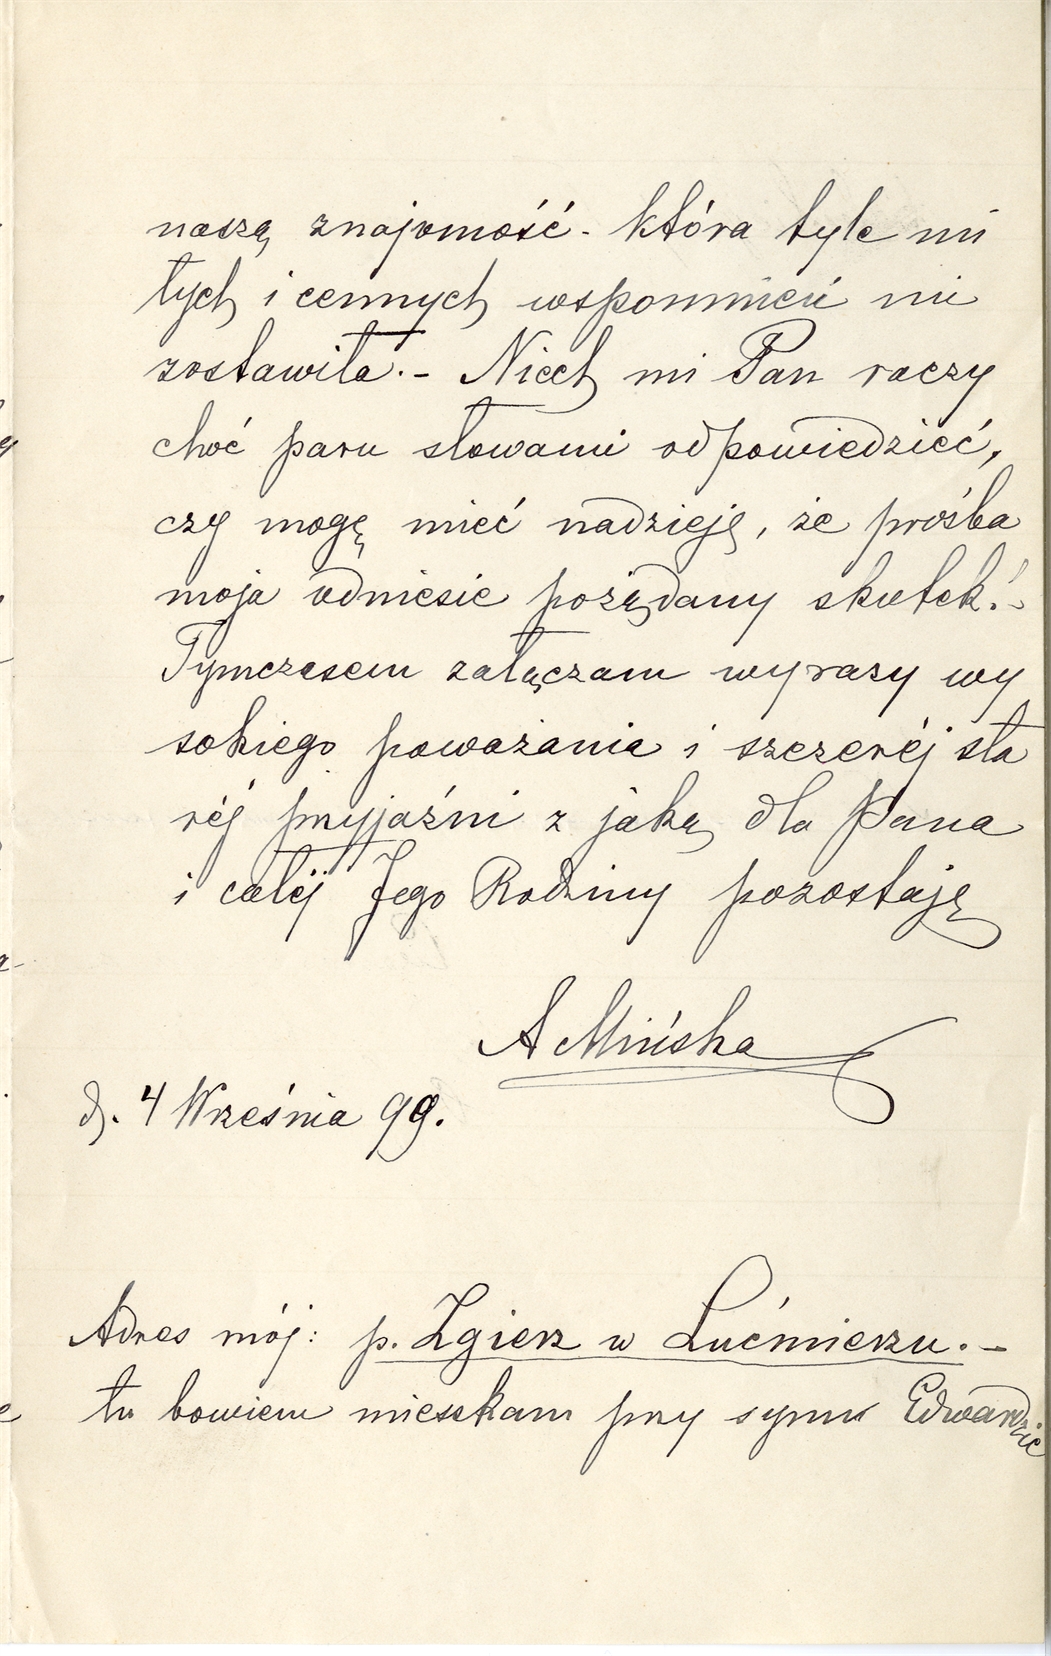 naszą znajomość - która tyle mi
łych i cennych wspomnień mi
zostawiła. - Niech mi Pan raczy
choć paru słowami odpowiedzieć,
czy mogę mieć nadzieję, że prośba
moja odniesie pożądany skutek! -
Tymczasem załączam wyrazy wy
sokiego poważania i szczeréj sta
réj przyjaźni z jaką dla Pana
i całéj Jego Rodziny pozostaję
A Mińska
d. 4 Września 99.
Adres mój: p. Zgierz w Lućmierzu. -
tu bowiem mieszkam przy synu Edwardzie